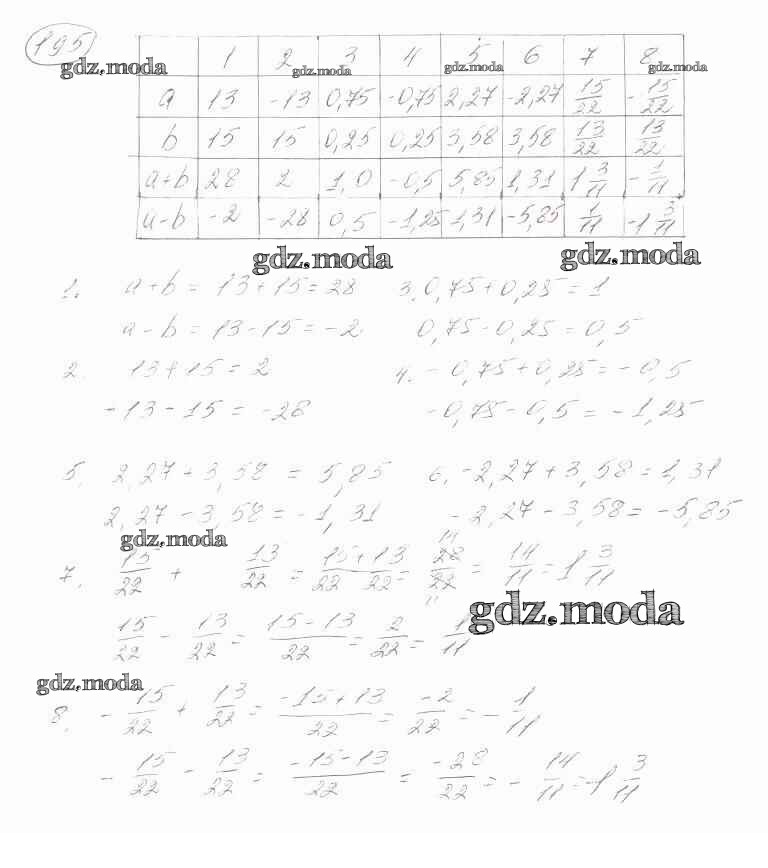 195
1 2 3 4 5 6 7 8
gdz.moda gdz.moda gdz.moda gdz.moda
a 13 -13 0,75 -0,75 2,27 -2,27 15/22 -15/22
b 15 15 0,25 0,25 3,58 3,58 13/22 13/22
a+b 28 2 1,0 -0,5 5,85 1,31 1 3/11 -1/11
a-b -2 -28 0,5 -1,25 1,31 -5,85 1/11 -1 3/11
gdz.moda gdz.moda
1. a+b = 13+15=28 3. 0,75+0,25=1
a-b = 13-15=-2 0,75-0,25=0,5
2. 13+15=2 4. -0,75+0,25=-0,5
-13-15=-28 -0,75-0,5=-1,25
5. 2,27+3,58 = 5,85 6. -2,27+3,58=1,31
2,27-3,58=-1,31 -2,27-3,58=-5,85
gdz.moda
7. 15/22 + 13/22 = 15+13/22 22 = 28/22 = 14/11 = 1 3/11
gdz.moda
15/22 - 13/22 = 15-13/22 = 2/22 = 1/11
gdz.moda
8. -15/22 + 13/22 = -15+13/22 = -2/22 = -1/11
-15/22 - 13/22 = -15-13/22 = -28/22 = -14/11 = -1 3/11